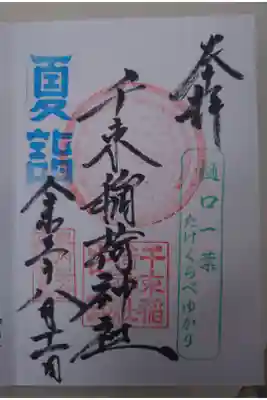 奉拝
樋口一葉
たけくらべゆかり
千束稲荷神社
千束稲
夏詣
令和二年八月十一日